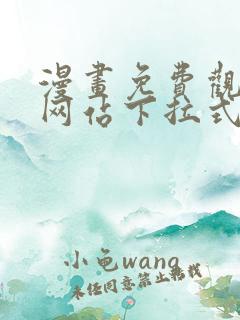 漫畫免費觀
网佔下拉式
小龟wang
未任同意禁止转载